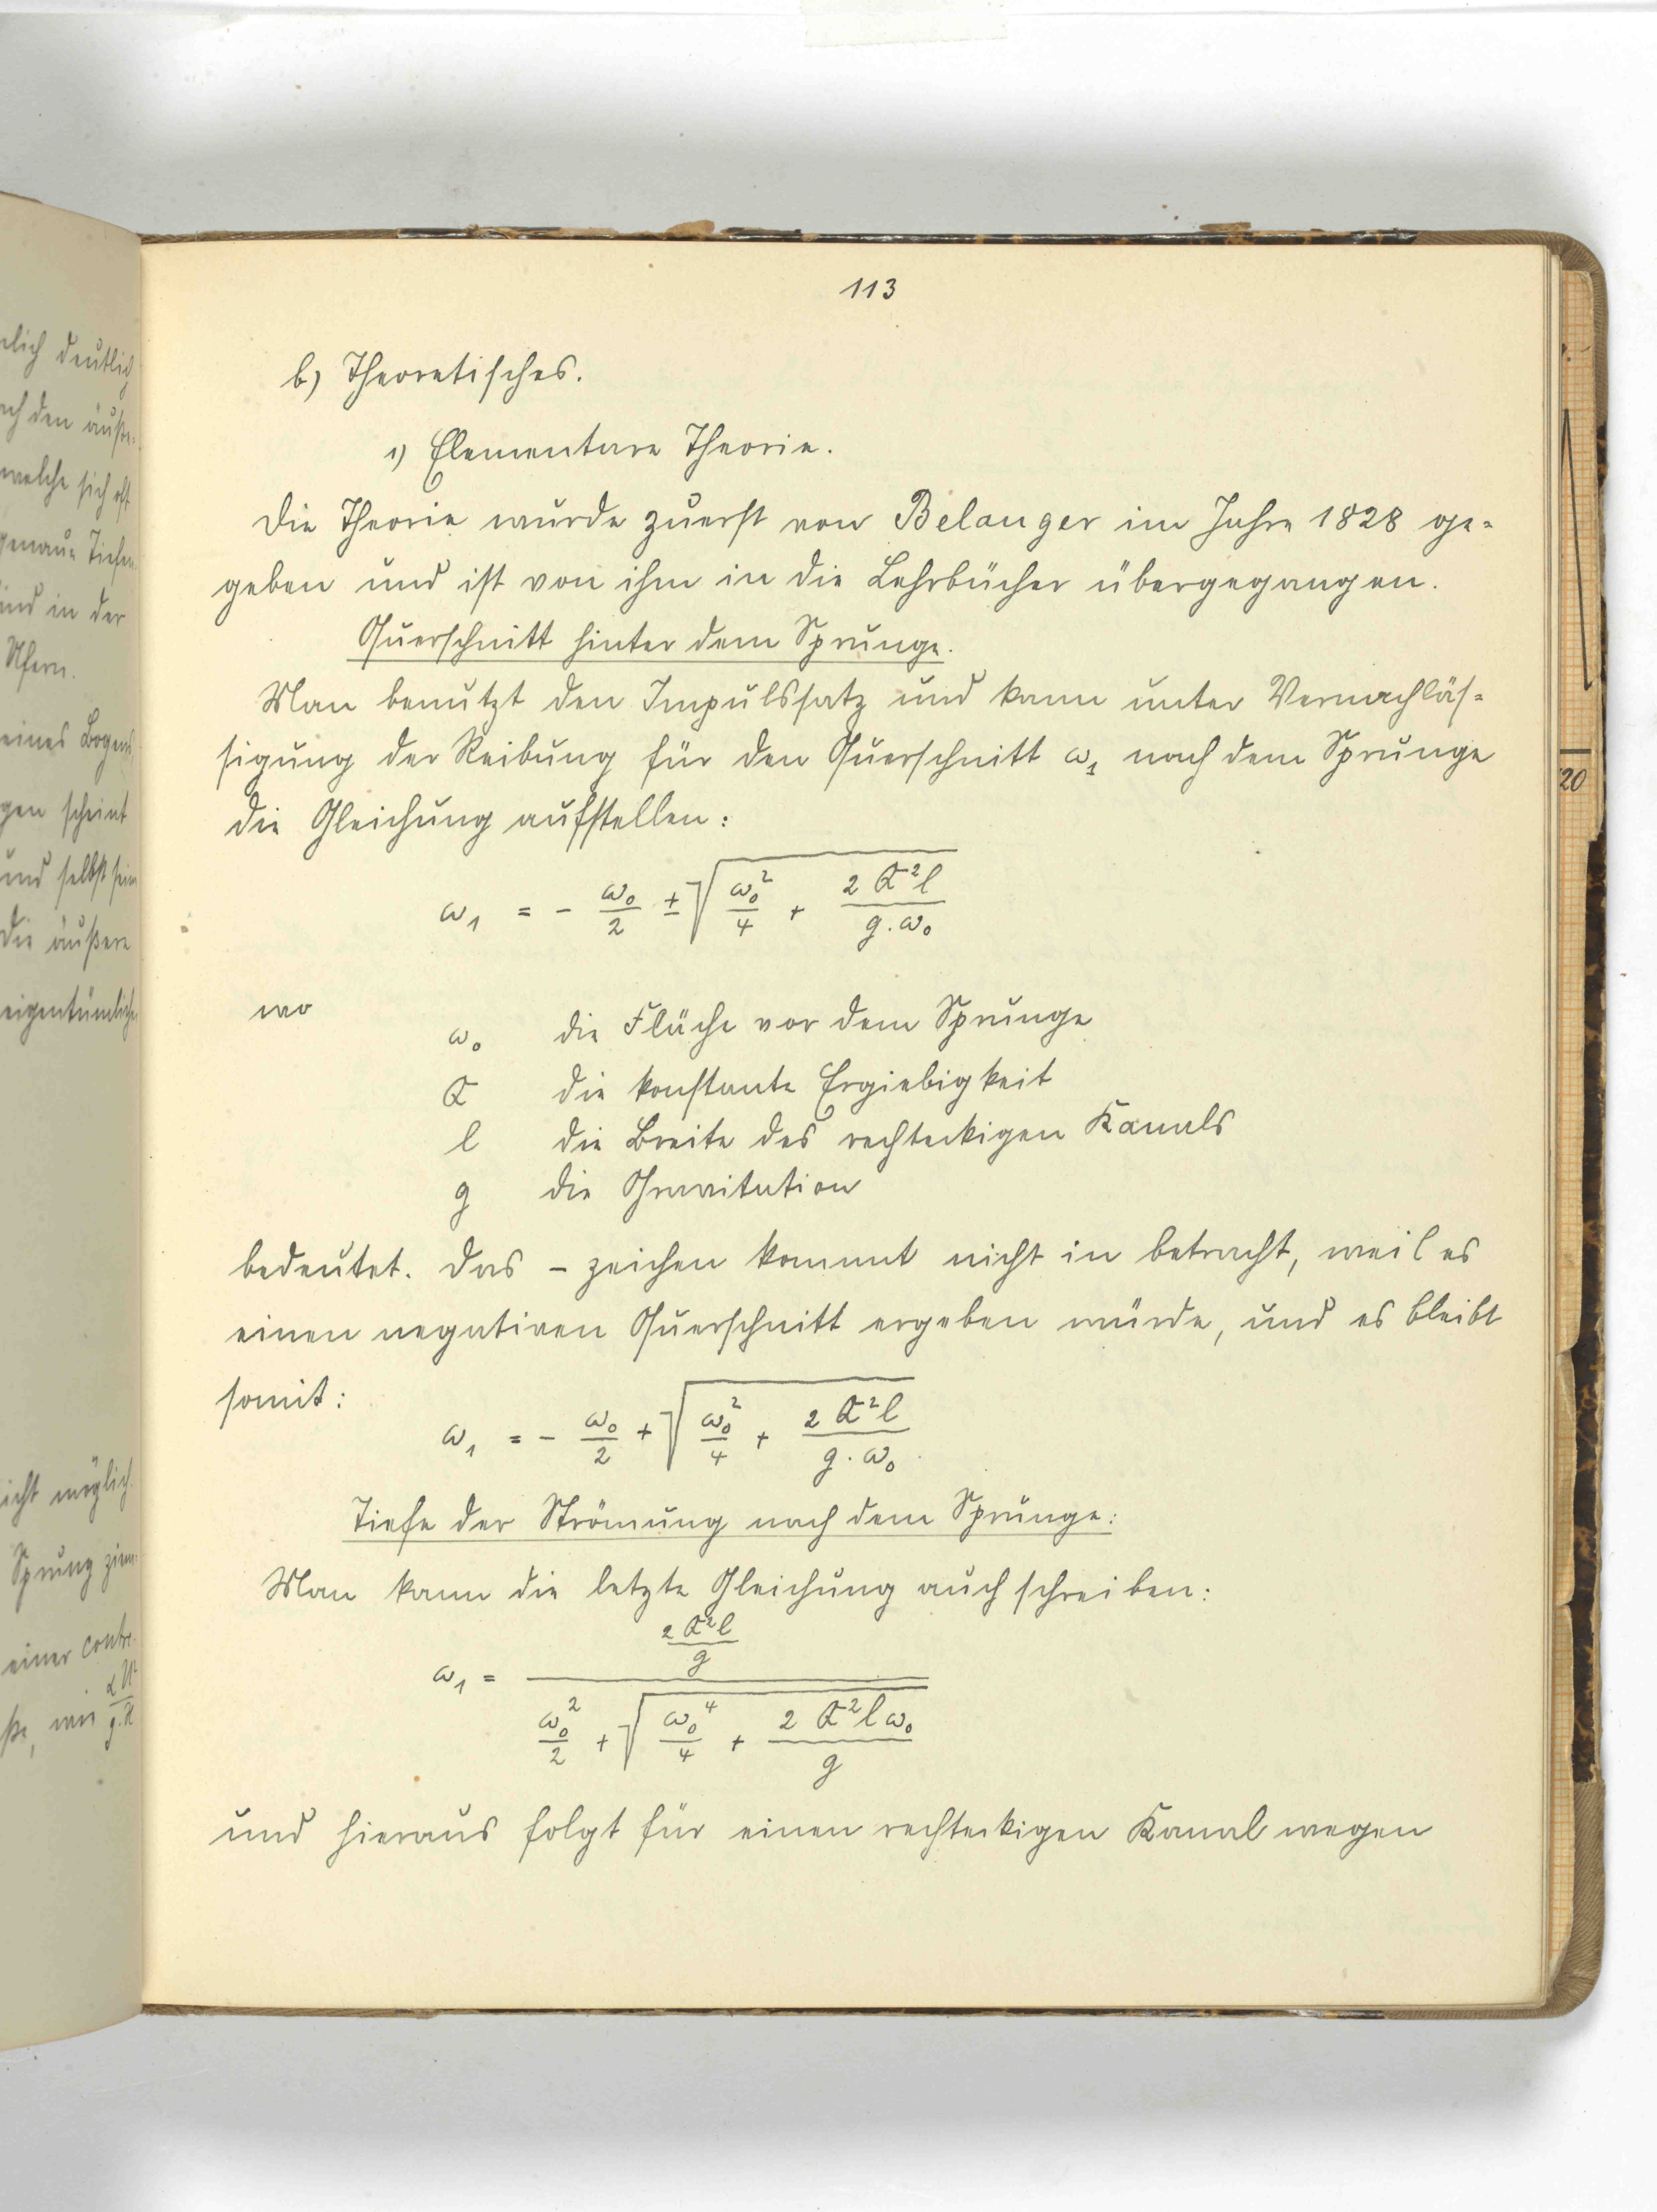 113
b) Theoretisches.
1) Elementare Theorie.
Die Theorie wurde zuerst von Belanger im Jahre 1828 ge-
geben und ist von ihm in die Lehrbücher übergegangen.
Querschnitt hinter dem Sprunge.
Man benutzt den Impulssatz und kann unter Vernachläs-
sigung der Reibung für den Querschnitt ω₁ nach dem Sprunge
die Gleichung aufstellen:
ω₁ = - ω₀/2 ± √(ω₀²/4 + 2 Q²l/(g.ω₀))
wo
ω₀ die Fläche vor dem Sprunge
Q die konstante Ergiebigkeit
l die Breite des rechteckigen Kanals
g die Gravitation
bedeutet. Das - zeichen kommt nicht in betracht, weil es
einen negativen Querschnitt ergeben würde, und es bleibt
somit:
ω₁ = - ω₀/2 + √(ω₀²/4 + 2 Q²l/(g.ω₀))
Tiefe der Strömung nach dem Sprunge:
Man kann die letzte Gleichung auch schreiben:
ω₁ = (2 Q²l/g) / (ω₀²/2 + √(ω₀⁴/4 + 2 Q²l ω₀/g))
und hieraus folgt für einen rechteckigen Kanal wegen
20
deutlich
den
welche sich oft
und in der
Ufern.
eines
scheint
und selbst
die äußere
nicht möglich.
Sprung
einer